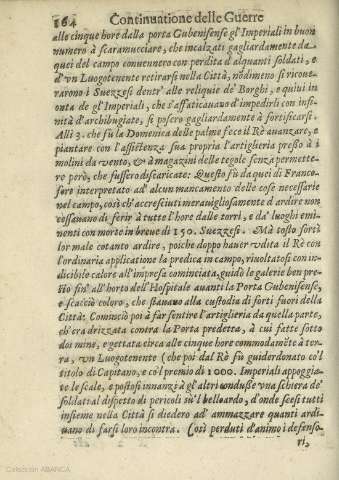 164 Continuatione delle Guerre
alle cinque hore dalla porta Gubenisense gl'Imperiali in buon
numero à scaramucciare, che incalzati gagliardamente da
quei del campo conuennero con perdita d'alquanti soldati, e
d'vn Luogotenente retirarsi nella Città, nõdimeno si ricoue-
rarono i Suezzesi dentr' alle reliquie de' Borghi, e quiui in
onta de gl'Imperiali, che s'affaticauano d'impedirli con infi-
nità d'archibugiate, si posero gagliardamente à fortificarsi.
Alli 3. che fù la Domenica delle palme fece il Rè auanzare, e
piantare con l'assistenza sua propria l'artiglieria presso à i
molini da vento, & à magazini delle tegole senza permette-
re però, che fussero discaricate: Questo fù da quei di Franco-
fort interpretato ad alcun mancamento delle cose necessarie
nel campo, così ch'accresciuti merauigliosamente d'ardire non
cessauano di ferir à tutte l'hore dalle torri, e da' luoghi emi-
nenti con morte in breue di 150. Suezzesi. Mà tosto sortì
lor male cotanto ardire, poiche doppo hauer vdita il Rè con
l'ordinaria applicatione la predica in campo, riuoltatosi con in-
dicibile calore all'impresa cominciata, guidò le galerie ben pre-
sto sin' all'horto dell'Hospitale auanti la Porta Gubenisense,
e scacciò coloro, che stauano alla custodia di forti fuori della
Città. Cominciò poi à far sentire l'artiglieria da quella parte,
ch'era drizzata contra la Porta predetta, à cui fatte sotto
doi mine, e gettata circa alle cinque hore commodamẽte à ter-
ra, vn Luogotenente (che poi dal Rè fù guiderdonato co'l
titolo di Capitano, e co'l premio di 1000. Imperiali appoggia-
te le scale, e postosi innanzi à gl'altri condusse vna schiera de'
soldati al dispetto di pericoli sù'l belloardo, d'onde scesi tutti
insieme nella Città si diedero ad ammazzare quanti ardi-
uano di farsi loro incontra. Così perduti d'animo i defenso-
ri,
Colección ABANCA